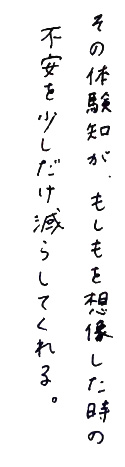 その体験知が、もしもを想像した時の
不安を少しだけ減らしてくれる。